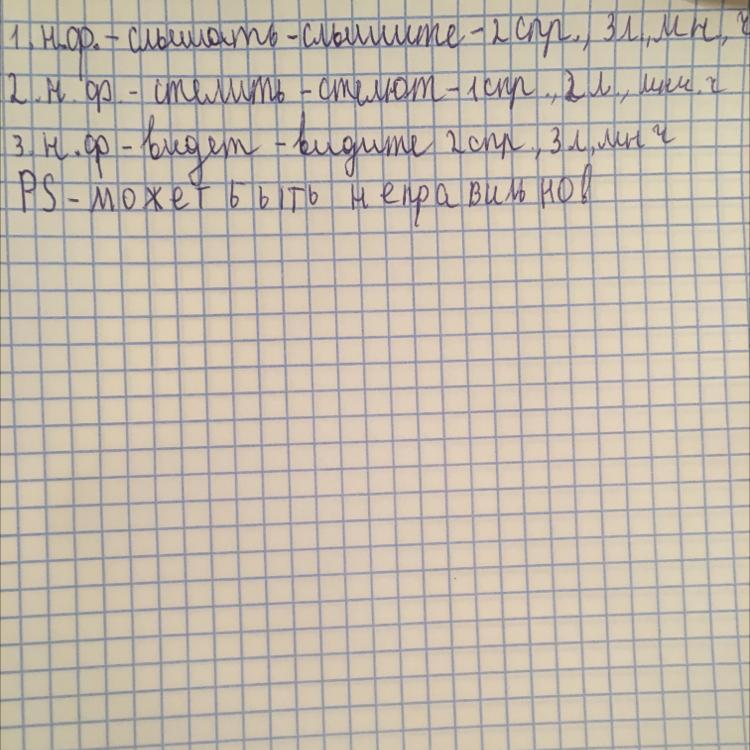 1. н.ф. - слышать - слышите - 2 спр., 3 л., мн, ч
2. н. ф. - стелить - стелют - 1 спр., 2 л., мн. ч
3. н. ф - видет - видите 2 спр., 3 л, мн ч
PS - может быть неправильно